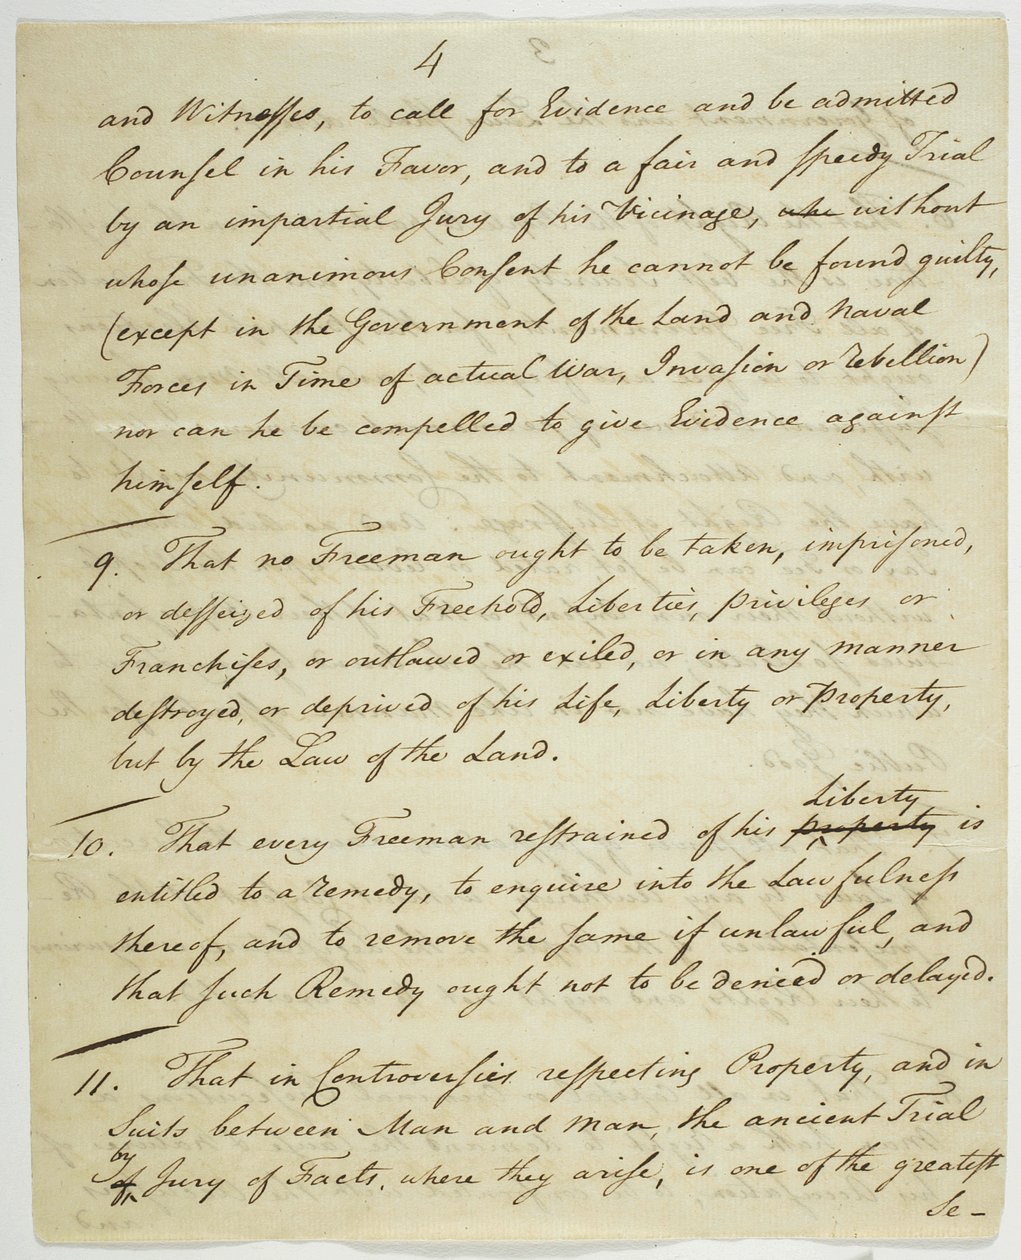 4
and Witnesses, to call for Evidence and be admitted
Counsel in his Favor, and to a fair and speedy Trial
by an impartial Jury of his Vicinage, who without
whose unanimous Consent he cannot be found guilty,
(except in the Government of the Land and Naval
Forces in Time of actual War, Invasion or Rebellion)
nor can he be compelled to give Evidence against
himself.
9. That no Freeman ought to be taken, imprisoned,
or desseized of his Freehold, Liberties, privileges or
Franchises, or outlawed or exiled, or in any manner
destroyed, or deprived of his Life, Liberty or Property,
but by the Law of the Land.
Liberty
10. That every Freeman restrained of his property is
entitled to a Remedy, to enquire into the Lawfulness
thereof, and to remove the same if unlawful, and
that such Remedy ought not to be denied or delayed.
11. That in Controversies respecting Property, and in
Suits between Man and Man, the ancient Trial
by
of Jury of Facts, where they arise, is one of the greatest
Se-